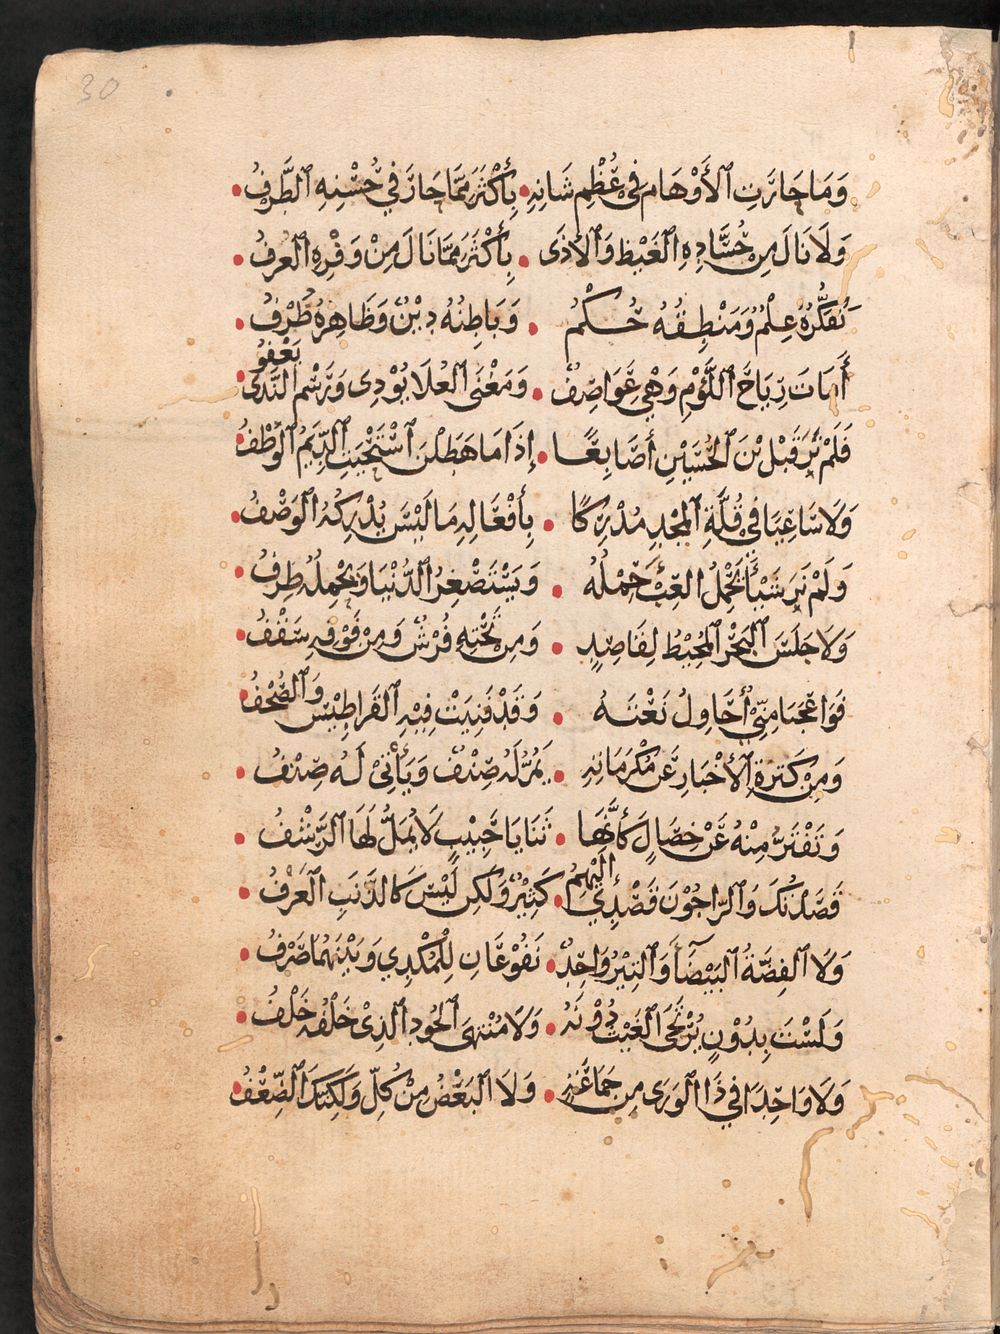 30
وَمَا حَارَتِ ٱلْأَوْهَام فى عُظْمِ شَانِهِ • بِأَكْثَرَ مِمَّا حَارَ فِي حُسْنِهِ ٱلطَّرْفُ •
وَلَا نَالَ مِن حُسَّادِهِ ٱلْغَيْظ وَٱلْأَذَى • بِأَكْثَرَ مِمَّا نَالَ مِنْ وَفْرِهِ ٱلْعُرفُ •
تَفَكُّرُهُ عِلْمٌ وَمَنْطِقُهُ حُكْمٌ • وَبَاطِنُهُ دِيْنٌ وَظَاهِرُهُ ظُرْفُ •
أَمَاتَ رِيَاحَ ٱللَّوْمِ وَهْيَ عَوَاصِفٌ • وَمَغْنَى ٱلْعُلَا يُوْدِى وَرَسْمُ ٱلنَّدَى يَعْفُو •
فَلَمْ نَرَ قَبْلَ بْنَ ٱلْحُسَيْنِ أَصَابِعًا • إِذَا مَا هَطَلْنَ ٱسْتَحْيَتِ ٱلدِّيَمُ ٱلْوُطْفُ •
وَلَا سَاعِيًا فِي قُلَّةِ ٱلْمَجْدِ مُدْرِكًا • بِأَفْعَالِهِ مَا لَيْسَ يُدْرِكُهُ ٱلْوَصْفُ •
وَلَمْ نَرَ شَيْأً يَحْمِلُ العِبْءَ حَمْلَهُ • وَيَسْتَصْغِرُ ٱلدُّنْيَا وَيَحْمِلُهُ طِرفُ •
وَلَا جَلَسَ ٱلْبَحْرُ ٱلْمُحِيْطُ لِقَاصِدٍ • وَمِن تَحْتِهِ فُرْشٌ وَمِنْ فَوْقِهِ سَقْفُ •
فَوَاعَجَبَا مِنِّى أُحَاوِلُ نَعْتَهُ • وَقَدْ فَنِيَتْ فِيْهِ ٱلْقَرَاطِيْسُ وَٱلصُّحْفُ •
وَمِنْ كَثرَةِ ٱلْأَخْبَارِ عَن مَكْرُمَاتِهِ • يَمُرُّ لَهُ صِنْفٌ وَيَأْتِىْ لَهُ صِنْفُ •
وَتَفْتَرُّ مِنْهُ عَنْ خِصَالٍ كَأَنَّهَا • ثَنَايَا حَبِيْبٍ لَا يُمَلُّ لَهَا ٱلرَّشْفُ •
قَصَدْتُكَ وَٱلرَّاجُوْنَ قَصْدِي إِلَيْهِمُ • كَثِيْرٌ وَلَكِن لَيْسَ كَالذَّنَبِ ٱلْعَرْفُ •
وَلَا ٱلْفِضَّةُ ٱلْبَيْضَآءُ وَٱلتِّبْرُ وَاحِدٌ • نَفُوْعَانِ لِلْمُكْدِي وَبَيْنَهُمَا صَرْفُ •
وَلَسْتَ بِدُوْنٍ يُرْتَجَى ٱلْغَيْثُ دُوْنَهُ • وَلَا مُنْتَهَى ٱلْجُودِ ٱلَّذِىْ خَلْفَهُ خَلْفُ •
وَلَا وَاحِدًا فِي ذَا ٱلْوَرَى مِن جَمَاعَةٍ • وَلَا ٱلْبَعْضُ مِنْ كُلٍّ وَلَكِنَّكَ ٱلضِّعْفُ •